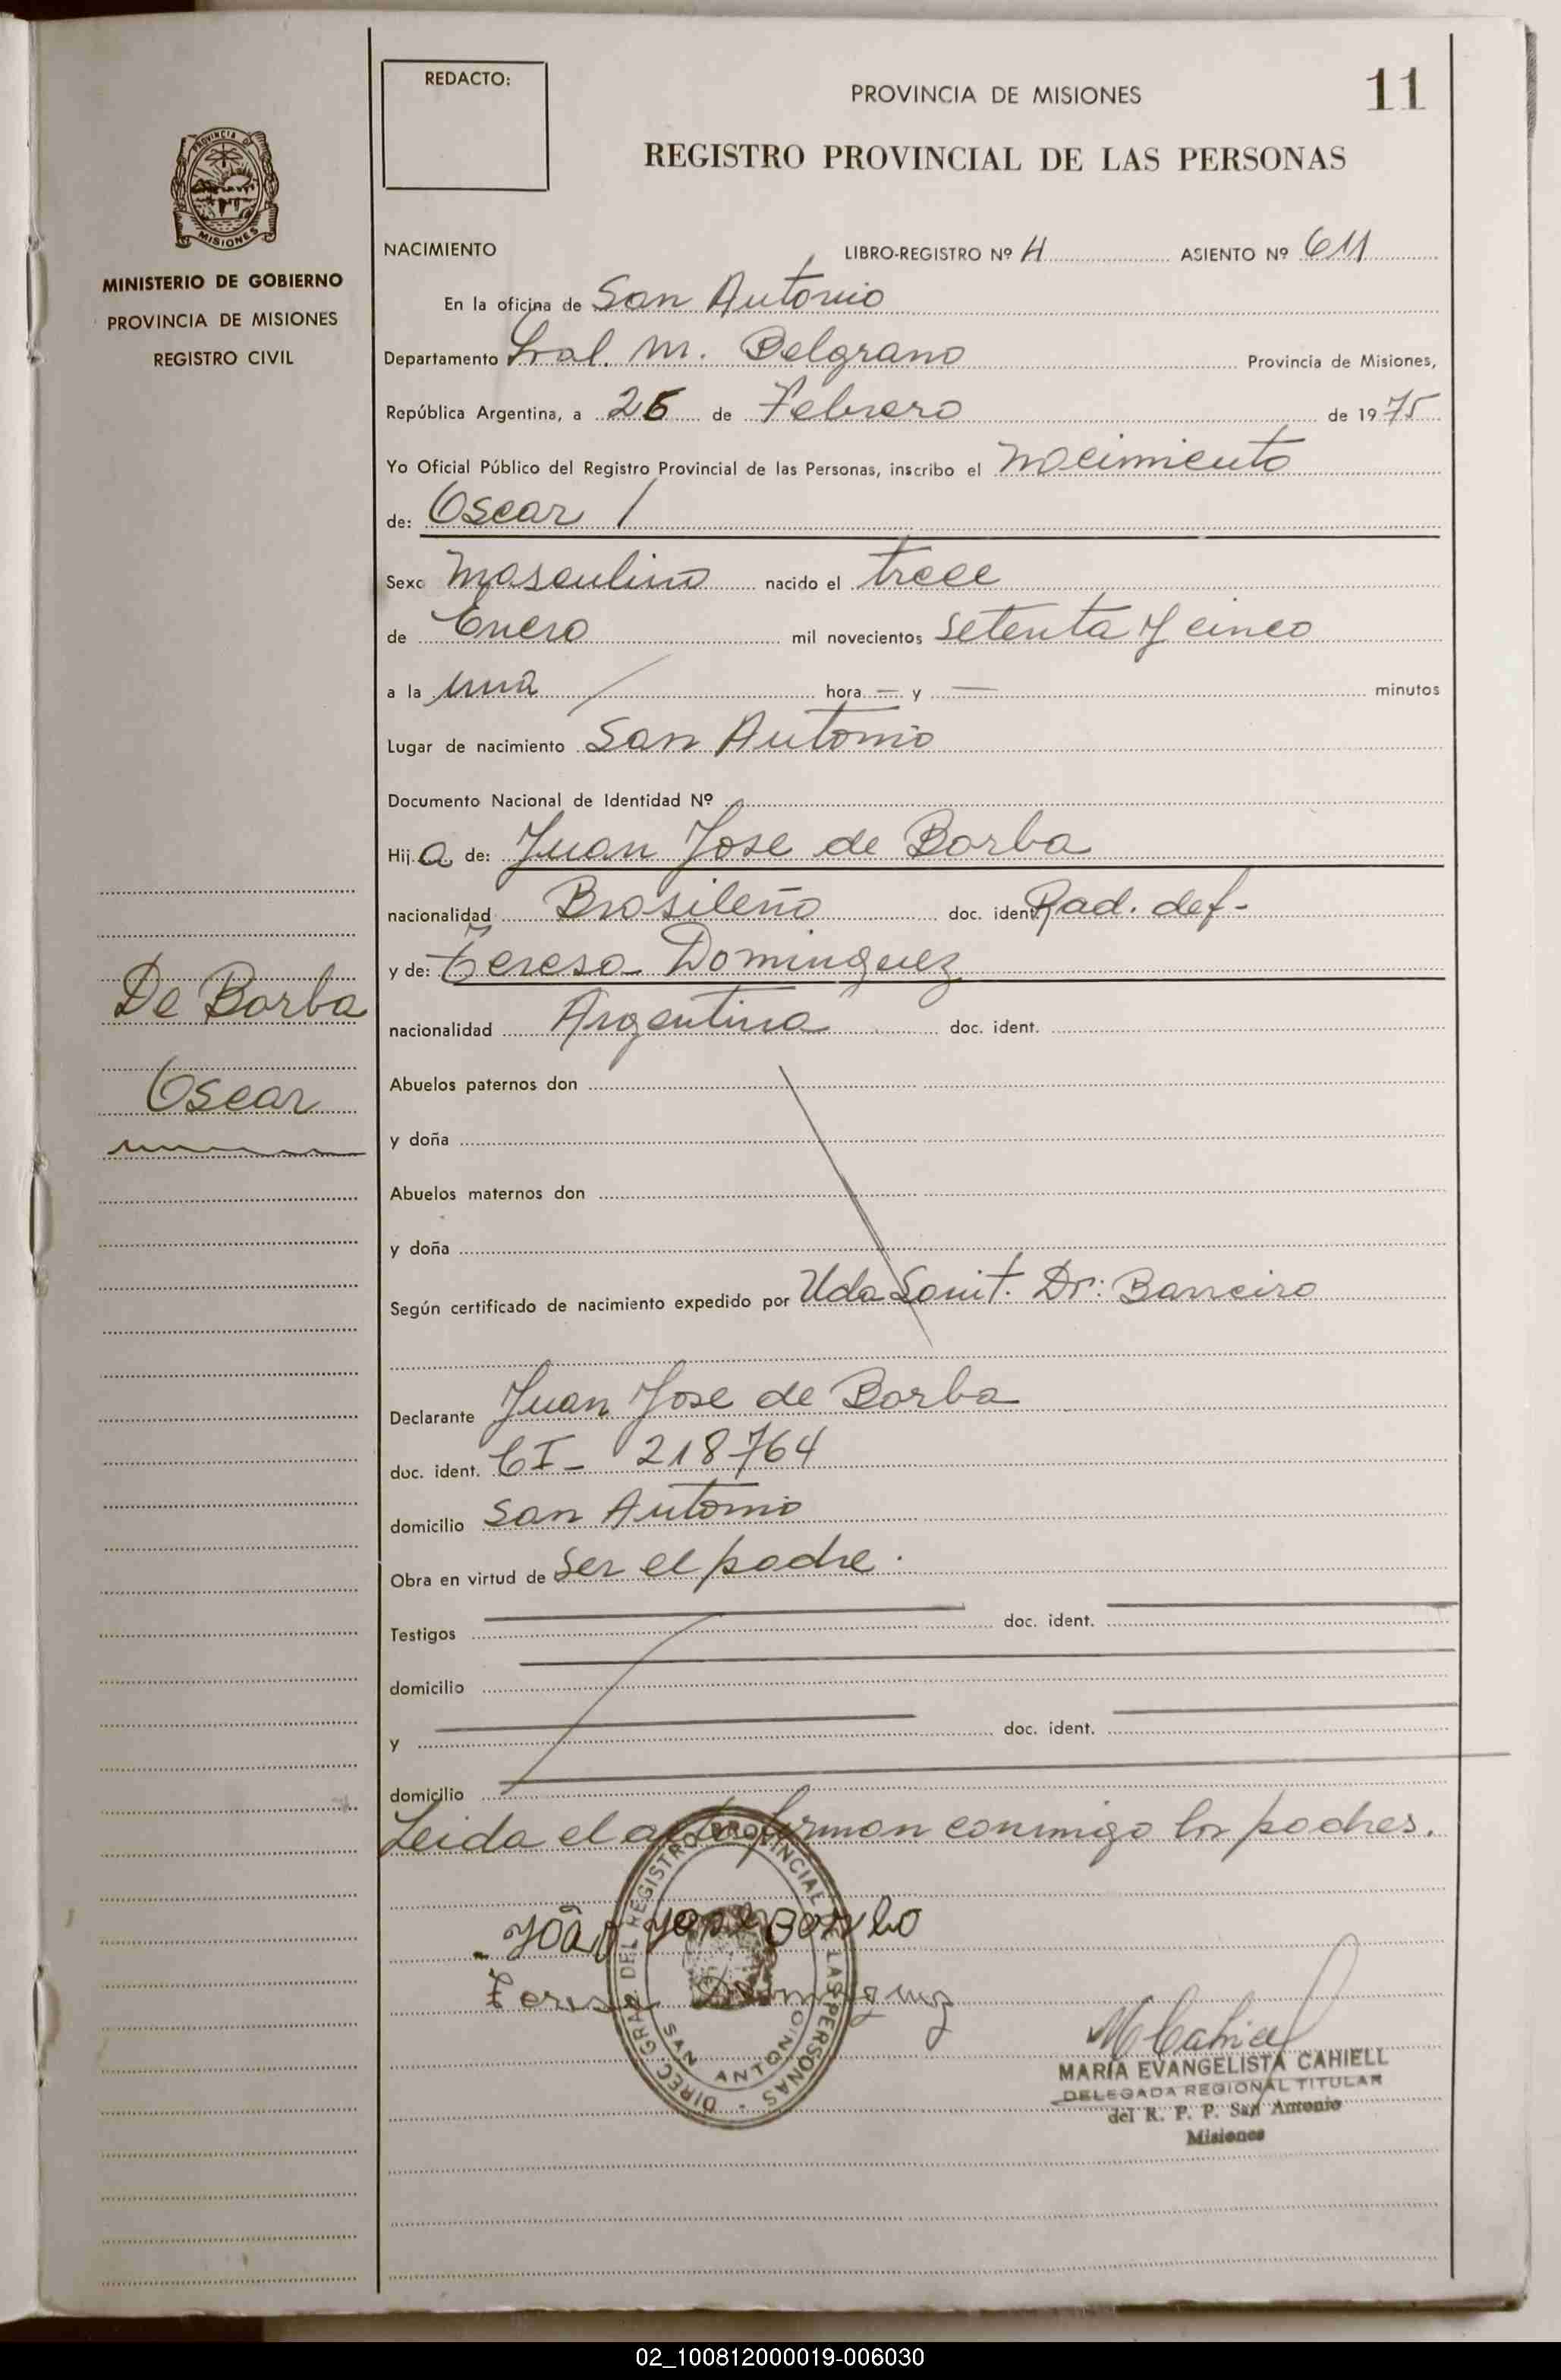 REDACTO:
PROVINCIA DE MISIONES
11
REGISTRO PROVINCIAL DE LAS PERSONAS
PROVINCIA D
MISIONES
MINISTERIO DE GOBIERNO
PROVINCIA DE MISIONES
REGISTRO CIVIL
NACIMIENTO LIBRO-REGISTRO Nº H ASIENTO Nº 611
En la oficina de San Antonio
Departamento Gral. M. Belgrano Provincia de Misiones,
República Argentina, a 26 de Febrero de 1975
Yo Oficial Público del Registro Provincial de las Personas, inscribo el nacimiento
de: Oscar /
Sexo masculino nacido el trece
de Enero mil novecientos setenta y cinco
a la una hora — y — minutos
Lugar de nacimiento San Antonio
Documento Nacional de Identidad Nº
Hij a de: Juan Jose de Borba
nacionalidad Brasileño doc. ident. Rad. def-
y de: Teresa Dominguez
nacionalidad Argentina doc. ident.
De Borba
Oscar
Abuelos paternos don
y doña
Abuelos maternos don
y doña
Según certificado de nacimiento expedido por Uda Sanit. Dr: Barreiro
Declarante Juan Jose de Borba
doc. ident. CI- 218764
domicilio San Antonio
Obra en virtud de ser el padre.
Testigos doc. ident.
domicilio
y doc. ident.
domicilio
Leida el acta firman conmigo los padres.
João Jose Borba
Teresa Dominguez
DIREC. GRAL. DEL REGISTRO PROVINCIAL LAS PERSONAS
SAN ANTONIO
M Cahiell
MARIA EVANGELISTA CAHIELL
DELEGADA REGIONAL TITULAR
del R. P. P. San Antonio
Misiones
02_100812000019-006030